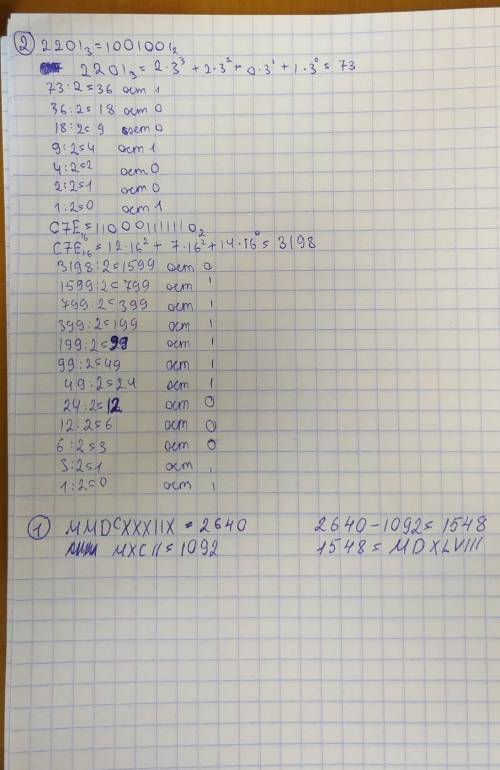 ② 2201₃ = 1001001₂
2201₃ = 2·3³ + 2·3² + 0·3¹ + 1·3⁰ = 73
73:2=36 ост 1
36:2=18 ост 0
18:2=9 ост 0
9:2=4 ост 1
4:2=2 ост 0
2:2=1 ост 0
1:2=0 ост 1
C7E₁₆ = 110001111110₂
C7E₁₆ = 12·16² + 7·16² + 14·16⁰ = 3198
3198:2=1599 ост 0
1599:2=799 ост 1
799:2=399 ост 1
399:2=199 ост 1
199:2=99 ост 1
99:2=49 ост 1
49:2=24 ост 1
24:2=12 ост 0
12:2=6 ост 0
6:2=3 ост 0
3:2=1 ост 1
1:2=0 ост 1
① MMDCXXXIIX = 2640 2640-1092=1548
MXCII=1092 1548=MDXLVIII